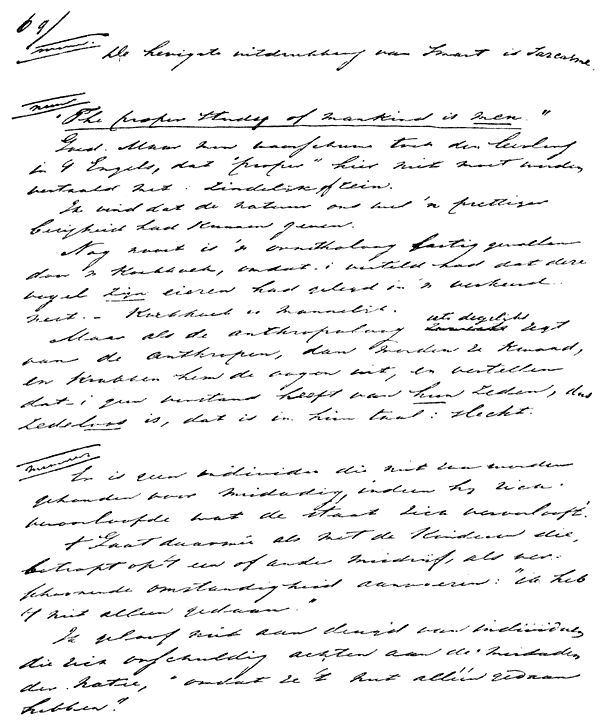 69/
De hevigste uitdrukking van Smart is Sarcasme.
"The proper study of mankind is men."
Goed. Maar men waarschuwe toch den leerling
in 't Engels, dat "proper" hier niet moet worden
vertaald met: zindelijk of rein.
Ik vind dat de natuur ons wel 'n prettiger
bezigheid had kunnen geven.
Nog nooit is 'n ornitholoog lastig gevallen
door 'n koekkoek, omdat-i verteld had dat deze
vogel zijn eieren had gelegd in 'n verkeerd
nest. - Koekkoek is mannelijk.
Maar als de anthropoloog iets degelijks zegt
van de anthropen, dan worden ze kwaad,
en krabben hem de oogen uit, en vertellen
dat-i geen verstand heeft van hun zeden, dus
zedeloos is, dat is in hun taal: slecht.
Er is geen individu die niet zou worden
gehouden voor misdadig, indien hy zich
veroorloofde wat de staat zich veroorlooft.
't Gaat daarmeê als met de kinderen die,
betrapt op 't een of ander misdrijf, als ver-
schoonende omstandigheid aanvoeren: "ik heb
't niet alleen gedaan."
Ik geloof niet aan deugd van individuen
die zich onschuldig achten aan de misdaden
der Natie, "omdat ze 't niet alléén gedaan
hebben."